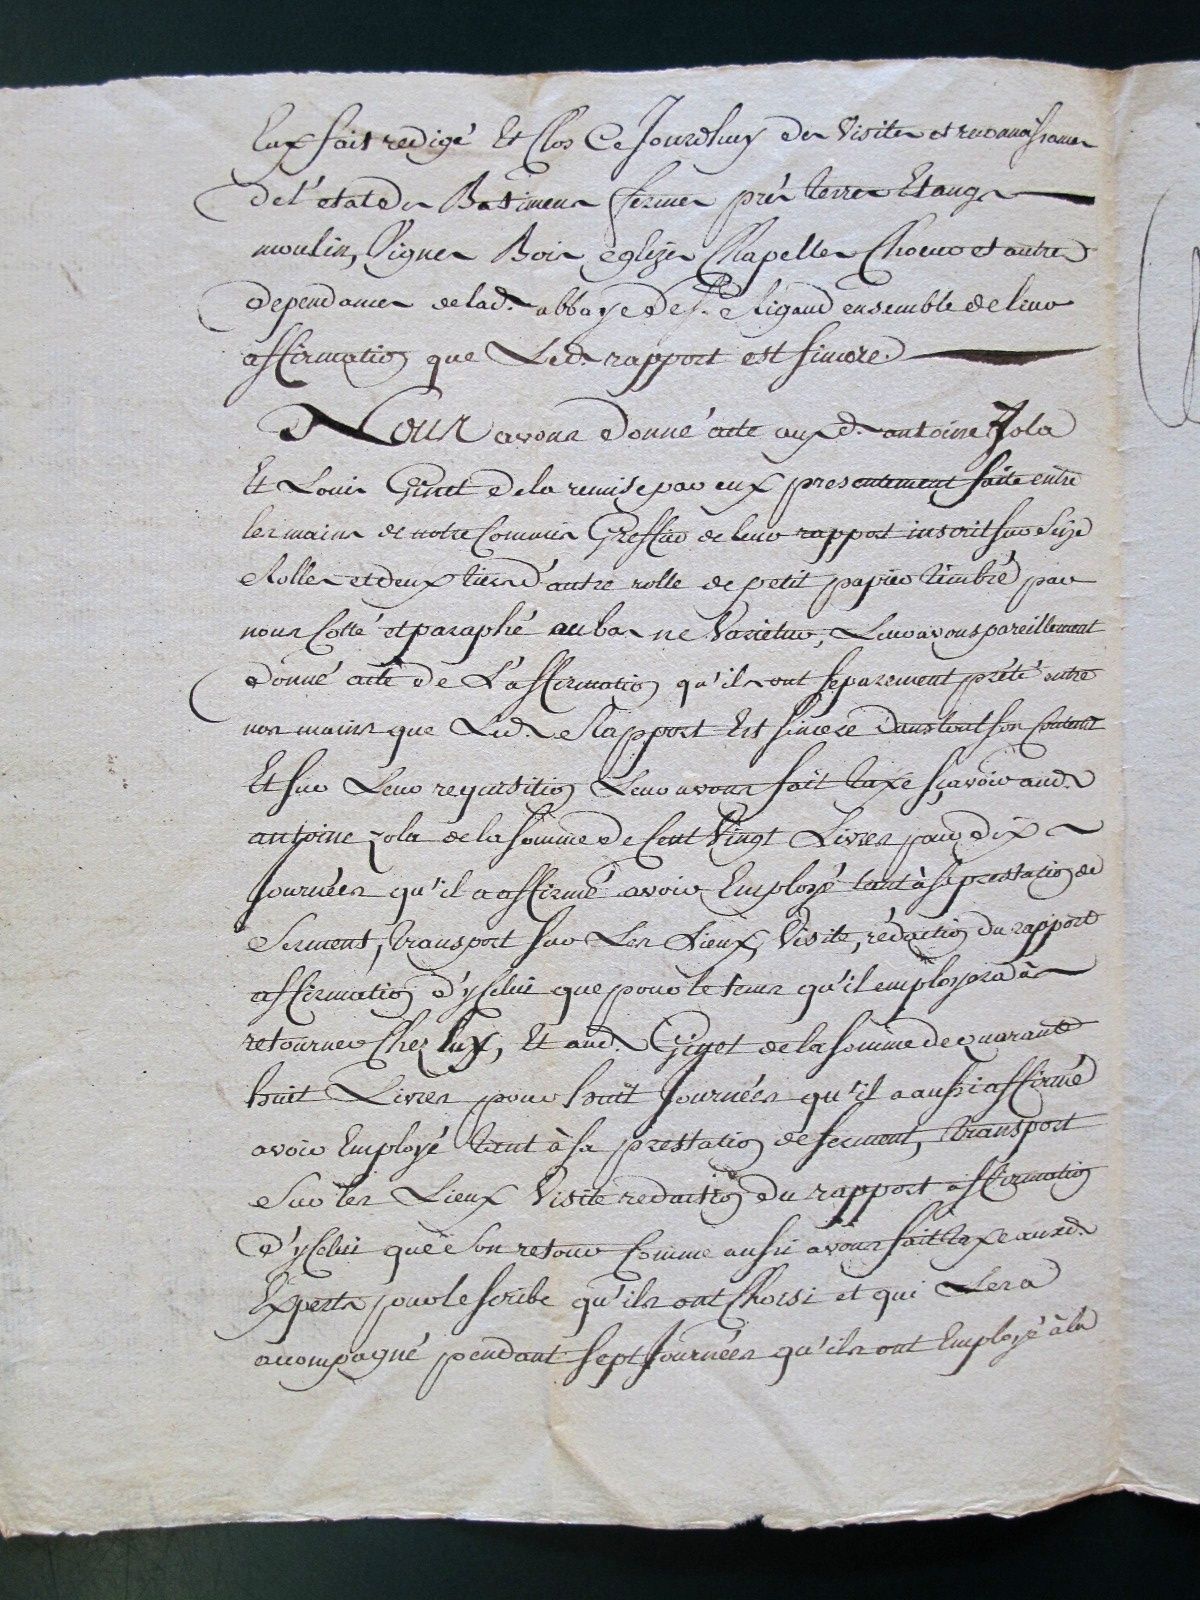 Eux fait redigé Et Clos Ce Jourdhuy des Visites et reconnaissances
de l'etat des Batimens fermes prés terres Etangs
moulin, Vignes Bois eglizes Chapelles Choeur et autres
dependances de lad. abbaye de St. Rigaud ensemble de leur
affirmation que Led. rapport est sincere.
Nous avons donné acte auxd. antoine Zola
Et Louis Ginet de la remise par eux presentement faite entre
les mains de notre Commis Greffier de leur rapport inscrit sur Seize
Rolles et deux tiers d'autre rolle de petit papier timbré par
nous Cotté et paraphé au bas ne Varietur, Leur avons pareillement
donné acte de L'affirmation qu'ils ont separement prété entre
nos mains que Led. Rapport Est sincere dans tout son Contenu
Et sur Leur requisition Leur avons fait taxe sçavoir aud.
antoine zola de la somme de Cent Vingt Livres pour dix
Journées qu'il a affirmé avoir Employé tant à sa prestation de
Serment, transport sur Les Lieux, Visite, rédaction du rapport
affirmation d'yCelui que pour le tems qu'il employera à
retourner Chez lux, Et aud. Ginet de la somme de quarante
huit Livres pour huit Journées qu'il a aussi affirmé
avoir Employé tant à sa prestation de serment, transport
Sur les Lieux Visite redaction du rapport affirmation
d'yCelui que Son retour Comme aussi avons fait taxe auxd.
Experts pour le scribe qu'ils ont Choisi et qui Les a
acompagné pendant sept Journées qu'ils ont Employé à la